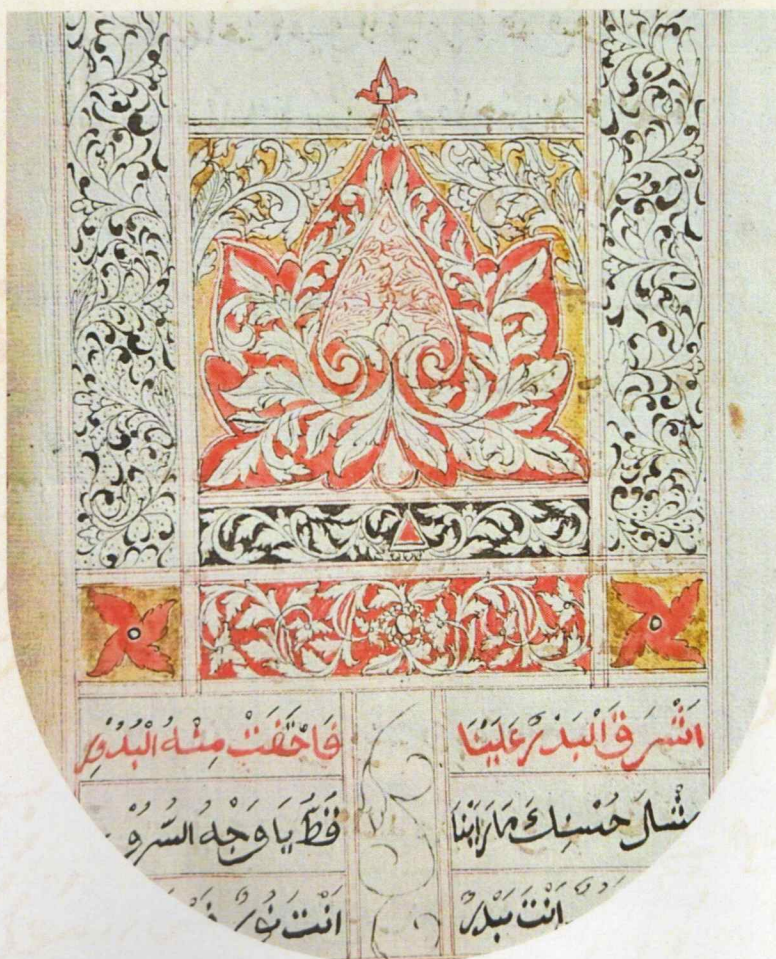 اَشْرَقَ الْبَدْرُ عَلَيْنَا فَاخْتَفَتْ مِنْهُ الْبُدُوْرُ
مِثْلَ حُسْنِكَ مَارَاَيْنَا قَطُّ يَا وَجْهَ السُّرُوْ
اَنْتَ بَدْرٌ اَنْتَ نُوْرٌ